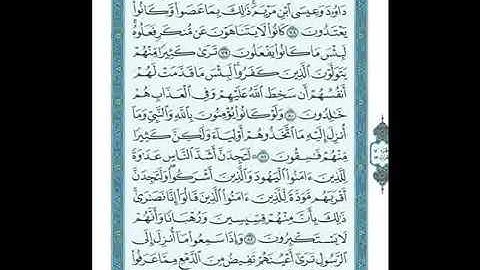 دَاوُۥدَ وَعِيسَى ٱبْنِ مَرْيَمَ ذَٰلِكَ بِمَا عَصَوا۟ وَّكَانُوا۟
يَعْتَدُونَ ٧٨ كَانُوا۟ لَا يَتَنَاهَوْنَ عَن مُّنكَرٍ فَعَلُوهُ
لَبِئْسَ مَا كَانُوا۟ يَفْعَلُونَ ٧٩ تَرَىٰ كَثِيرًا مِّنْهُمْ
يَتَوَلَّوْنَ ٱلَّذِينَ كَفَرُوا۟ لَبِئْسَ مَا قَدَّمَتْ لَهُمْ
أَنفُسُهُمْ أَن سَخِطَ ٱللَّهُ عَلَيْهِمْ وَفِى ٱلْعَذَابِ هُمْ
خَٰلِدُونَ ٨٠ وَلَوْ كَانُوا۟ يُؤْمِنُونَ بِٱللَّهِ وَٱلنَّبِىِّ وَمَآ
أُنزِلَ إِلَيْهِ مَا ٱتَّخَذُوهُمْ أَوْلِيَآءَ وَلَٰكِنَّ كَثِيرًا
مِّنْهُمْ فَٰسِقُونَ ٨١ لَتَجِدَنَّ أَشَدَّ ٱلنَّاسِ عَدَٰوَةً
لِّلَّذِينَ ءَامَنُوا۟ ٱلْيَهُودَ وَٱلَّذِينَ أَشْرَكُوا۟ وَلَتَجِدَنَّ
أَقْرَبَهُم مَّوَدَّةً لِّلَّذِينَ ءَامَنُوا۟ ٱلَّذِينَ قَالُوٓا۟ إِنَّا نَصَٰرَىٰ
ذَٰلِكَ بِأَنَّ مِنْهُمْ قِسِّيسِينَ وَرُهْبَانًا وَأَنَّهُمْ
لَا يَسْتَكْبِرُونَ ٨٢ وَإِذَا سَمِعُوا۟ مَآ أُنزِلَ إِلَى
ٱلرَّسُولِ تَرَىٰٓ أَعْيُنَهُمْ تَفِيضُ مِنَ ٱلدَّمْعِ مِمَّا عَرَفُوا۟